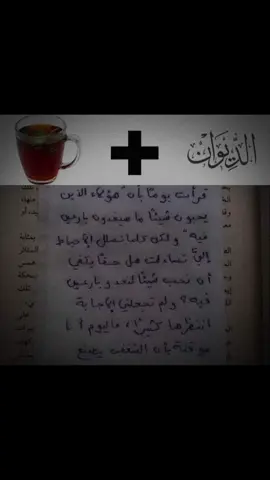 الدِّيوَان
قرأت يومًا بأن هؤلاء الذين
يحبون شيئًا ما سيغدون بارعين
فيه" ولكن كلما تسلل الإحباط
إليّ تساءلت هل حقًا يكفي
أن نحب شيئًا لنغدو بارعين
فيه؟ ولم تجعلني الإجابة
انتظرها كثيرًا، فاليوم أنا
موقنة بأن الشغف يصنع